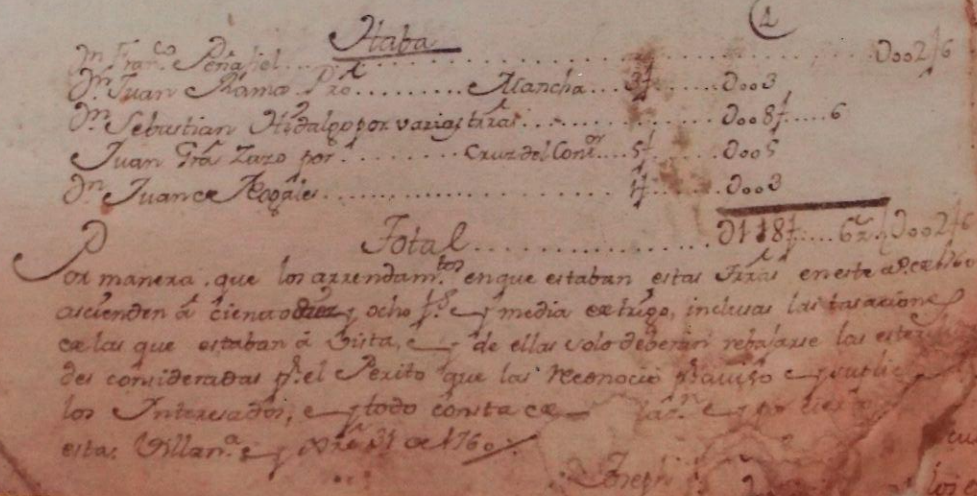 Haba
Dn. Franco. Peñafiel ........ D002 6
Dn. Juan Ramos Pro. ........ Mancha ... 3f ...... D003
Dn. Sebastian Hidalgo por varias trras ........ D008f ..... 6
Juan Gra Zazo por ........ Cruz del Conor ... 5f ..... D005
Dn. Juan de Nogales ........ D003
Total ........ D118f ..... 6 D002 6
Por manera, que los arrendamtos. en que estaban estas Trras en este
ascienden á ciento diez y ocho fs. y media de trigo, inclusas las tasaciones
de las que estaban á Vista, y de ellas solo deberan rebajarse las
des consideradas pr. el Perito que las reconoció
los Interesados, y todo consta de
estas Villana. y Dre 31 de 1760
Joseph